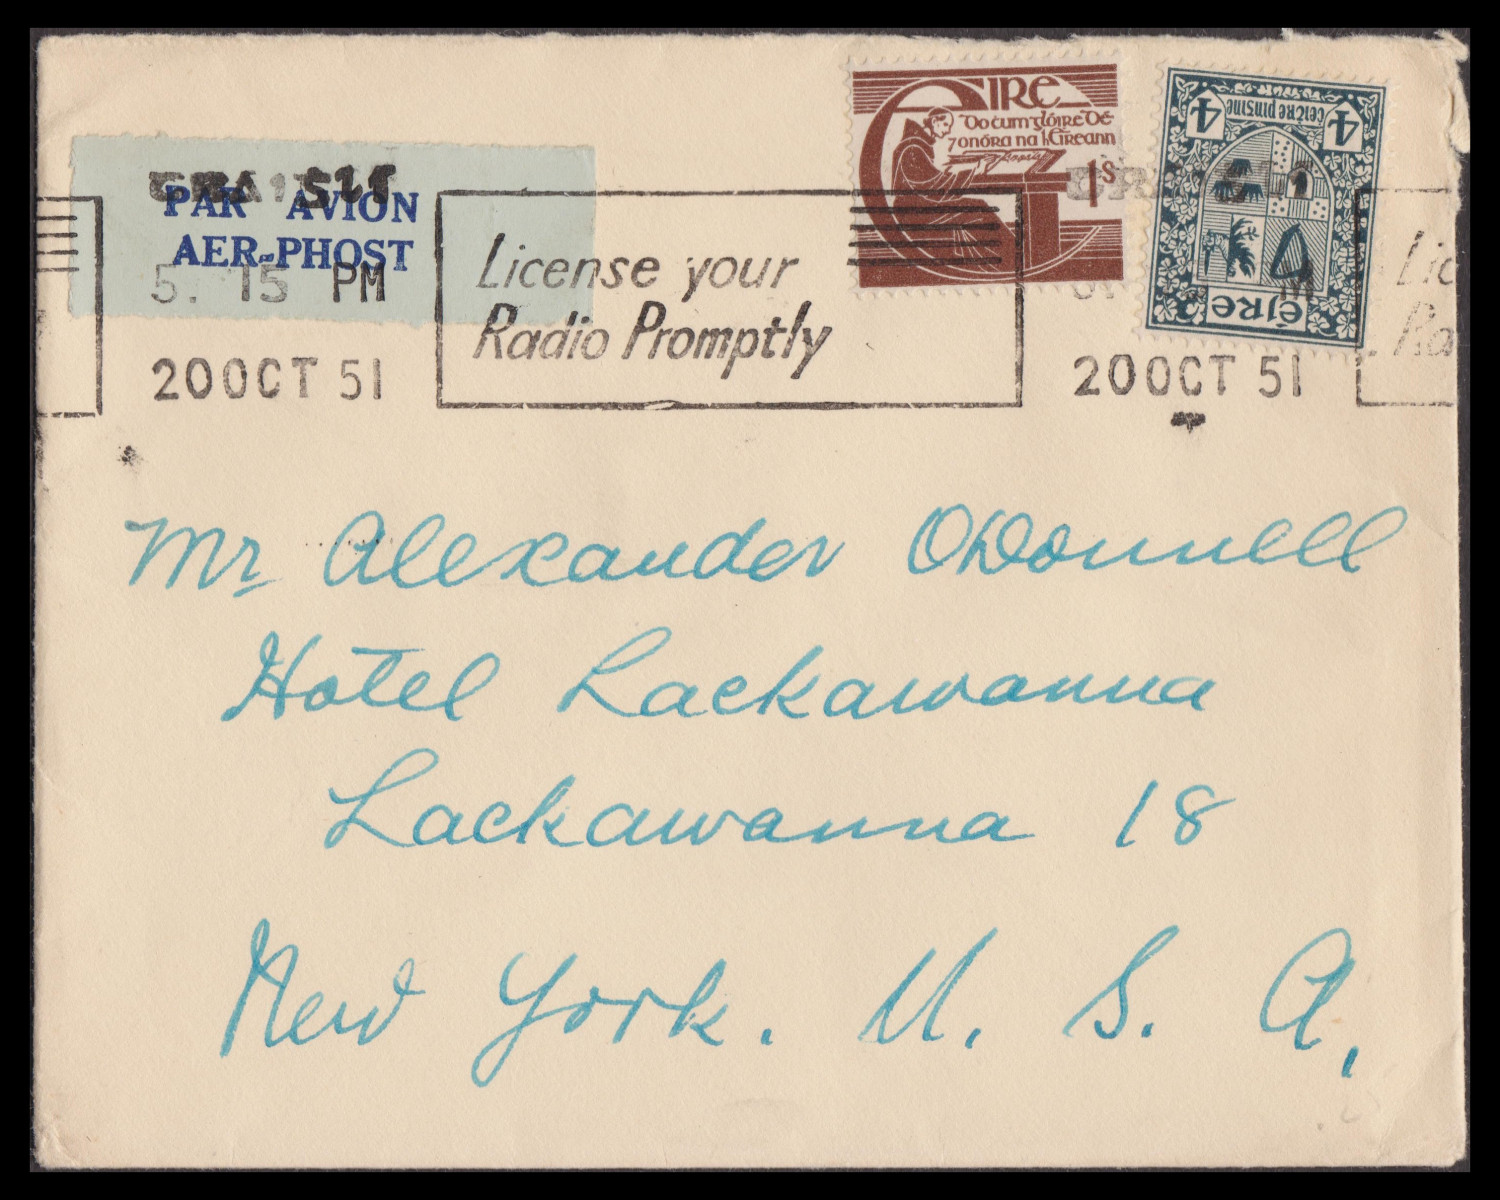 PAR AVION
AER-PHOST
5. 15 PM
20 OCT 51
License your
Radio Promptly
EIRE
Do ċum glóire Dé
⁊ onóra na hÉireann
1s
4 4
ceiṫre pinsine
éire
20 OCT 51
Lic
Ra
Mr Alexander O'Donnell
Hotel Lackawanna
Lackawanna 18
New York. U. S. A.